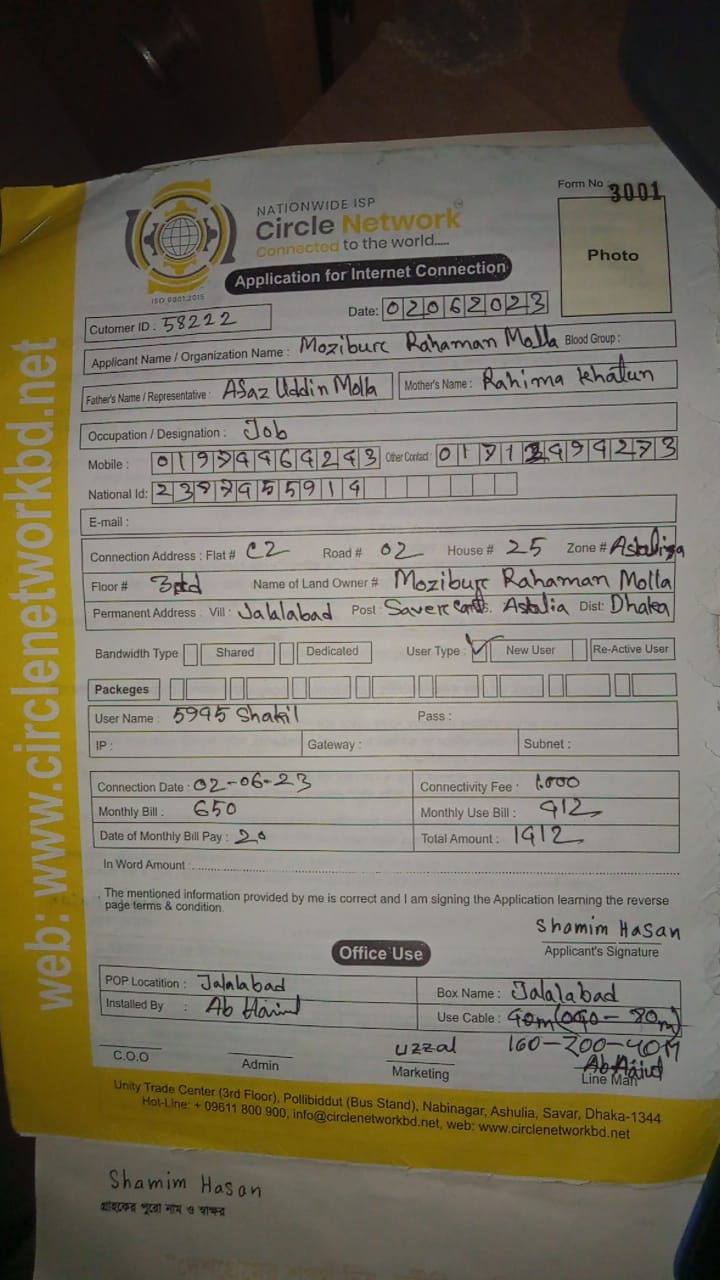 NATIONWIDE ISP
Circle Network
Connected to the world.....
ISO 9001:2015
Application for Internet Connection
Form No 3001
Photo
Cutomer ID : 58222
Date: 02062023
Applicant Name / Organization Name : Moziburc Rahaman Molla Blood Group :
Father's Name / Representative : Afaz Uddin Molla Mother's Name : Rahima Khatun
Occupation / Designation : Job
Mobile : Other Contact :
National Id:
E-mail :
Connection Address : Flat # C2 Road # 02 House # 25 Zone #
Floor # Name of Land Owner # Moziburc Rahaman Molla
Permanent Address Vill : Jalalabad Post : Dist: Dhaka
Bandwidth Type Shared Dedicated User Type : New User Re-Active User
Packeges
User Name : Pass :
IP : Gateway : Subnet :
Connection Date : 02-06-23 Connectivity Fee : 1.000
Monthly Bill : 650 Monthly Use Bill : 912
Date of Monthly Bill Pay : 20 Total Amount : 1912
In Word Amount :
The mentioned information provided by me is correct and I am signing the Application learning the reverse
page terms & condition.
Shamim Hasan
Applicant's Signature
Office Use
POP Locatition : Jalalabad Box Name : Jalalabad
Installed By : Use Cable :
C.O.O Admin Uzzal Marketing Line Man
Unity Trade Center (3rd Floor), Pollibiddut (Bus Stand), Nabinagar, Ashulia, Savar, Dhaka-1344
Hot-Line: + 09611 800 900, info@circlenetworkbd.net, web: www.circlenetworkbd.net
web: www.circlenetworkbd.net
Shamim Hasan
গ্রাহকের পুরো নাম ও স্বাক্ষর